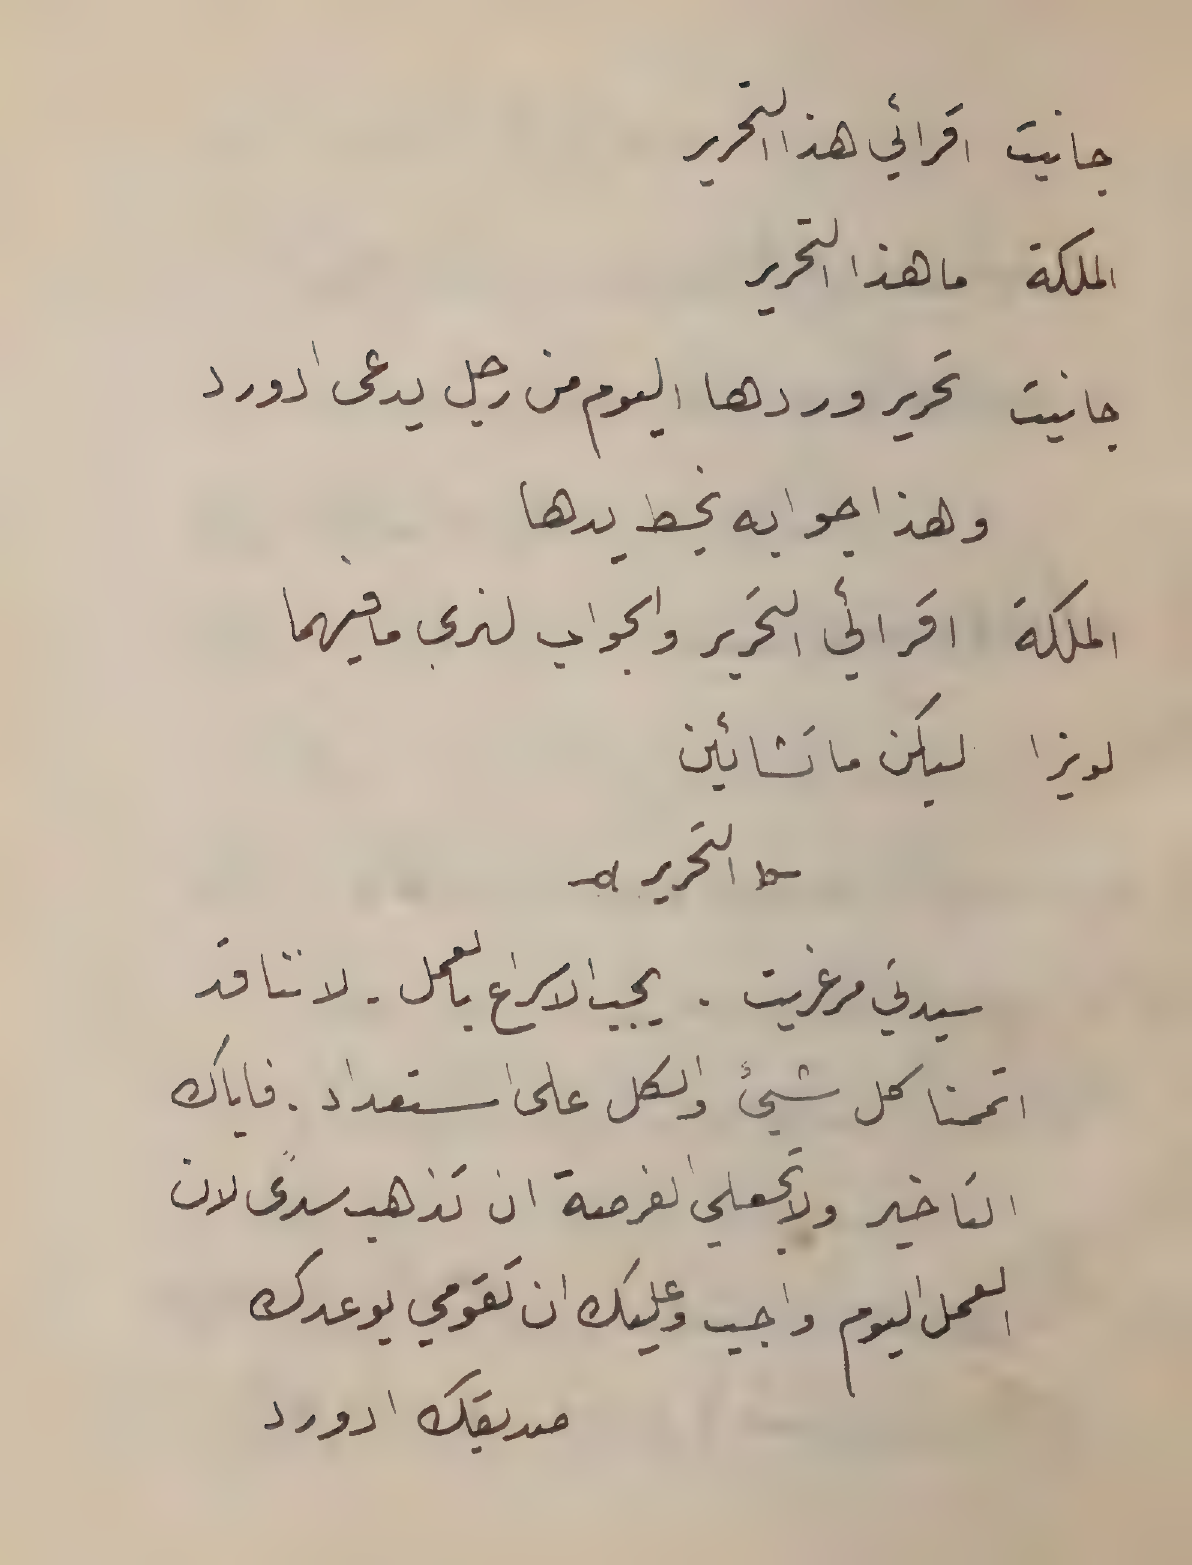 جانيت اقرائي هذا التحرير
الملكة ما هذا التحرير
جانيت تحرير وردها اليوم من رجل يدعى ادورد
وهذا جوابه بخط يدها
الملكة اقرائي التحرير والجواب لنرى ما فيهما
لويزا ليكن ما تشائين
التحرير
سيدتي مرغريت . يجب الاسراع بالعمل . لاننا قد
اتممنا كل شيئ والكل على استعداد . فاياك
التاخير ولا تجعلي الفرصة ان تذهب سدًى لان
العمل اليوم واجب وعليك ان تقومي بوعدك
صديقك ادورد